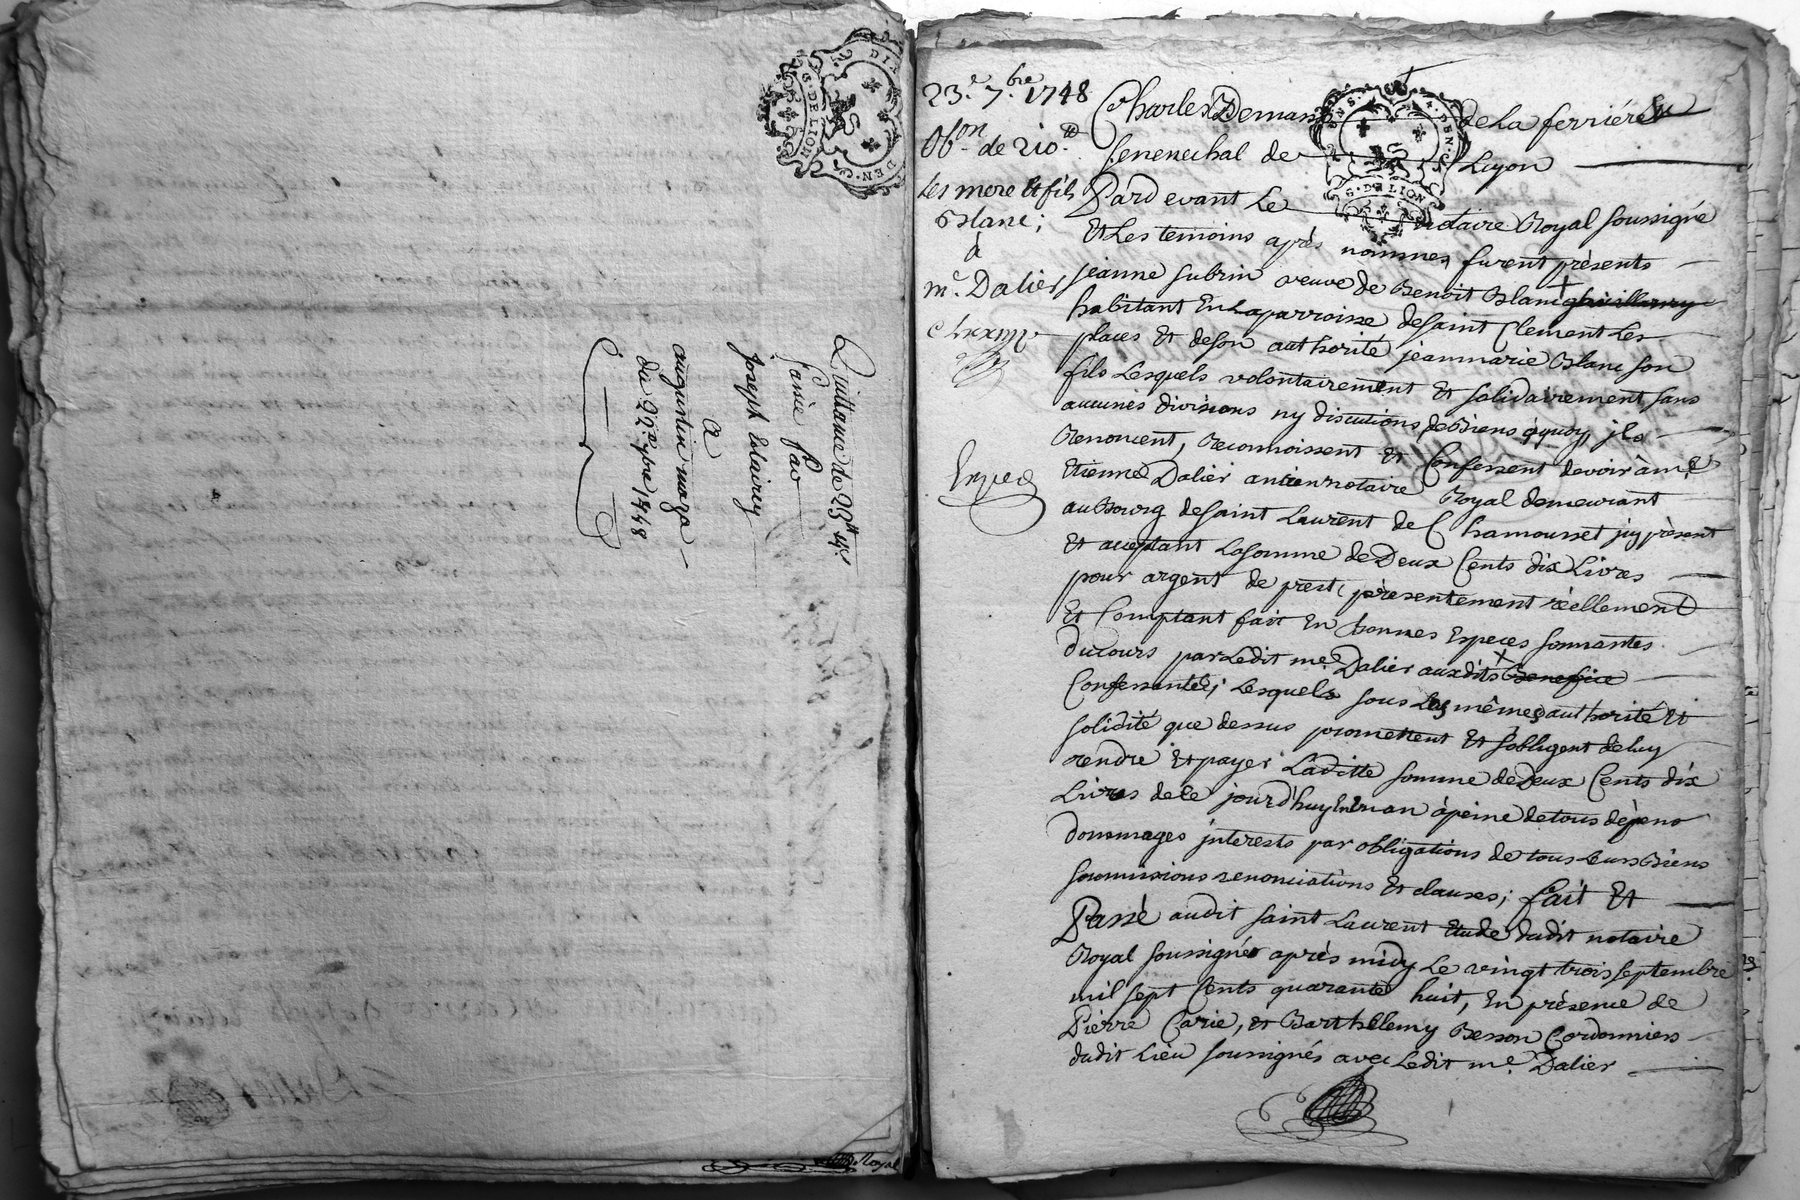 Quittance de 23ᵗᵗ 4ˢ
passée par
Joseph Eclaircy
a
augustin maza
du 22ᵉ 7bre 1748
Royal
G. DE LION
DEN.
23.ᵉ 7.bre 1748
Ob.on de 210.ᵗᵗ
les mere Et fils
Blanc;
à
m.ᵉ Dalier
Expeé
G. DE LION
Charles Demasso de La ferriére
Senenechal de Lyon
Pardevant Le notaire Royal soussigné
Et Les temoins aprés nommes, furent présents
jeanne subrin veuve de Benoit Blanc
habitant En La parroisse de saint Clement Les
places Et de son authorité jeanmarie Blanc son
fils Lesquels volontairement Et solidairement sans
aucunes divisions ny discutions de Biens à quoy jls
Renoncent, Reconnoissent Et Confessent devoir à m.ᵉ
Etienne Dalier ancien notaire Royal demeurant
au Bourg de saint Laurent de Chamousset jcy présent
Et acceptant La somme de Deux Cents dix Livres
pour argent de prest, présentement réellement
Et Comptant fait En bonnes Especes sonnantes
du cours par Ledit m.ᵉ Dalier auxdits Benefice
Confessantes; Lesquels sous Les mêmes authorité Et
solidité que dessus promettent Et s'obligent de luy
rendre Et payer Laditte somme de Deux Cents dix
Livres de ce jourd'huy En un an à peine de tous dépens
dommages jnterests par obligations de tous leurs Biens
soumissions renonciations Et clauses; fait Et
Passé audit saint Laurent Etude dudit notaire
Royal soussigné aprés midy Le vingt trois septembre
mil sept Cents quarante huit, En présence de
Pierre Carie, et Barthelemy Besson Cordonniers
dudit Lieu soussignés avec Ledit m.ᵉ Dalier